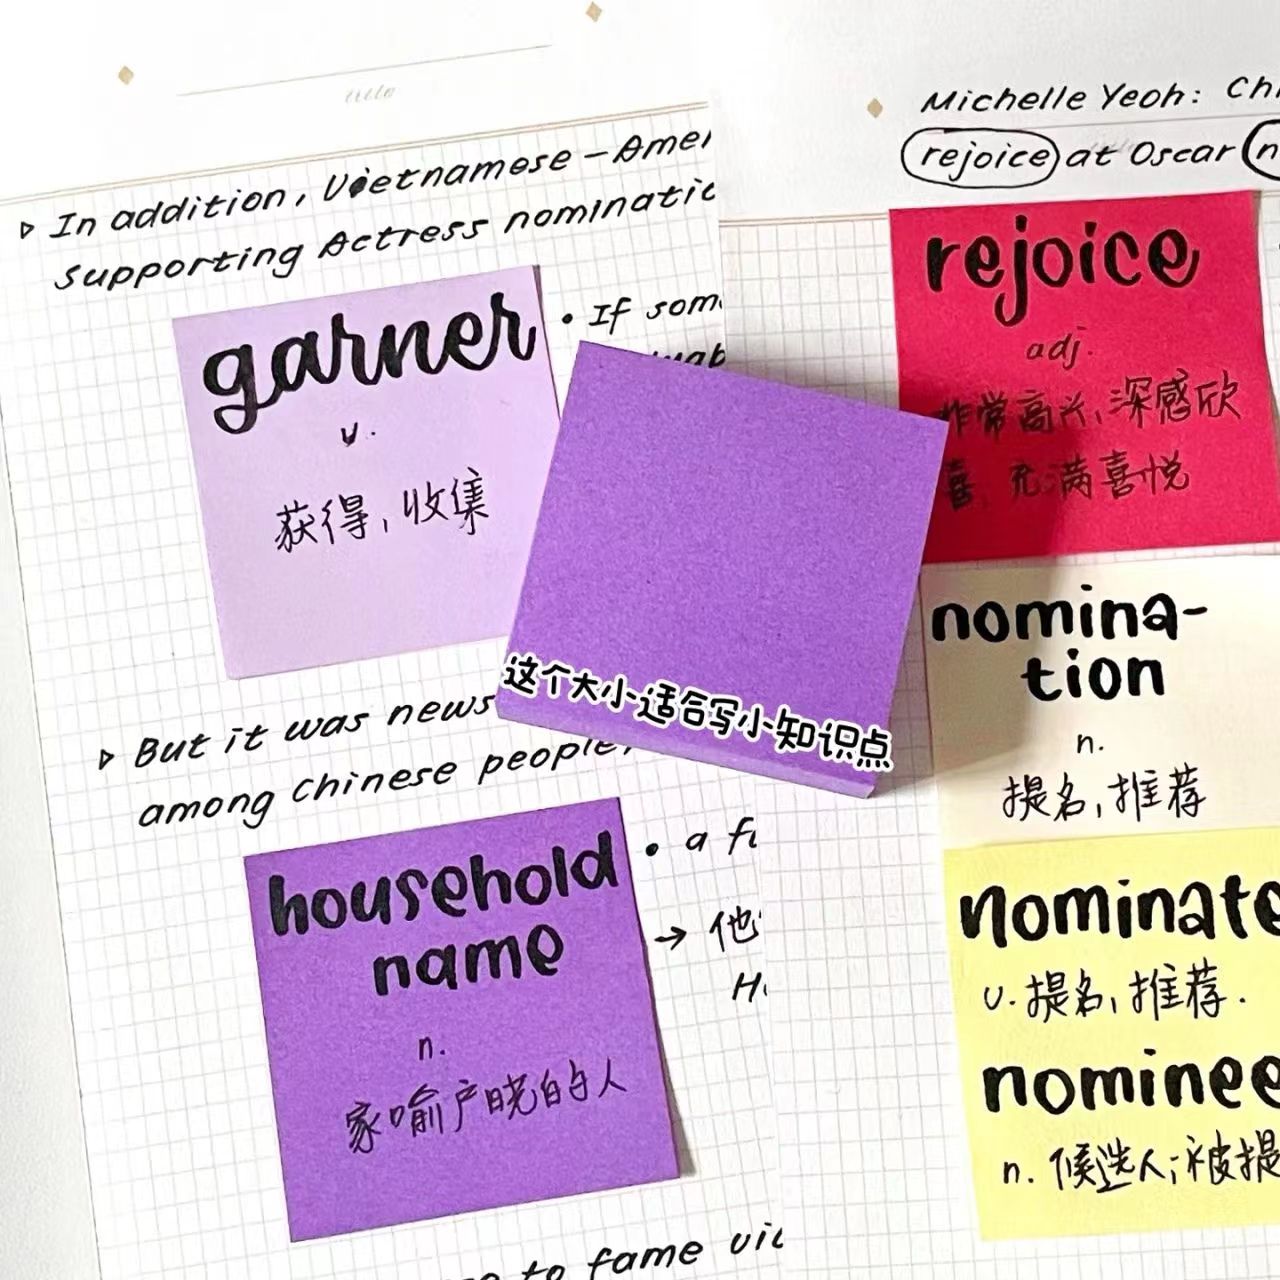 title
▷ In addition, Vietnamese-Amer
supporting Actress nominatio
garner
v.
获得, 收集
• If som
▷ But it was news
among chinese people,
household
name
n.
家喻户晓的人
• a fi
→ 他
H
to fame vi
这个大小适合写小知识点
Michelle Yeoh: Chi
rejoice at Oscar n
rejoice
adj.
非常高兴, 深感欣
喜, 充满喜悦
nomina-
tion
n.
提名, 推荐
nominate
v. 提名, 推荐.
nominee
n. 候选人; 被提